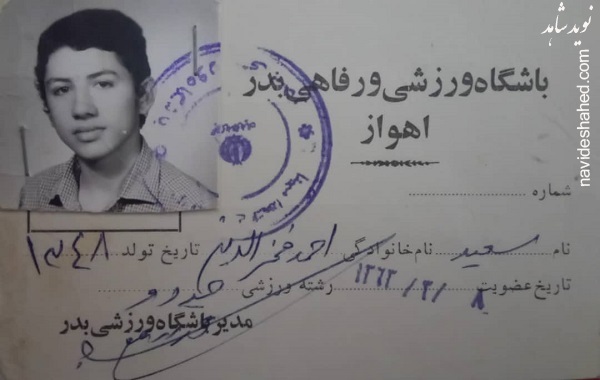 نوید شاهد
navideshahed.com
باشگاه ورزشی و رفاهی بدر
اهواز
شماره ................
نام سعید نام خانوادگی احمد فخرالدین تاریخ تولد ۱۳۴۸
تاریخ عضویت ۸ /۲/ ۱۳۶۲ رشته ورزشی جودو
مدیر باشگاه ورزشی بدر